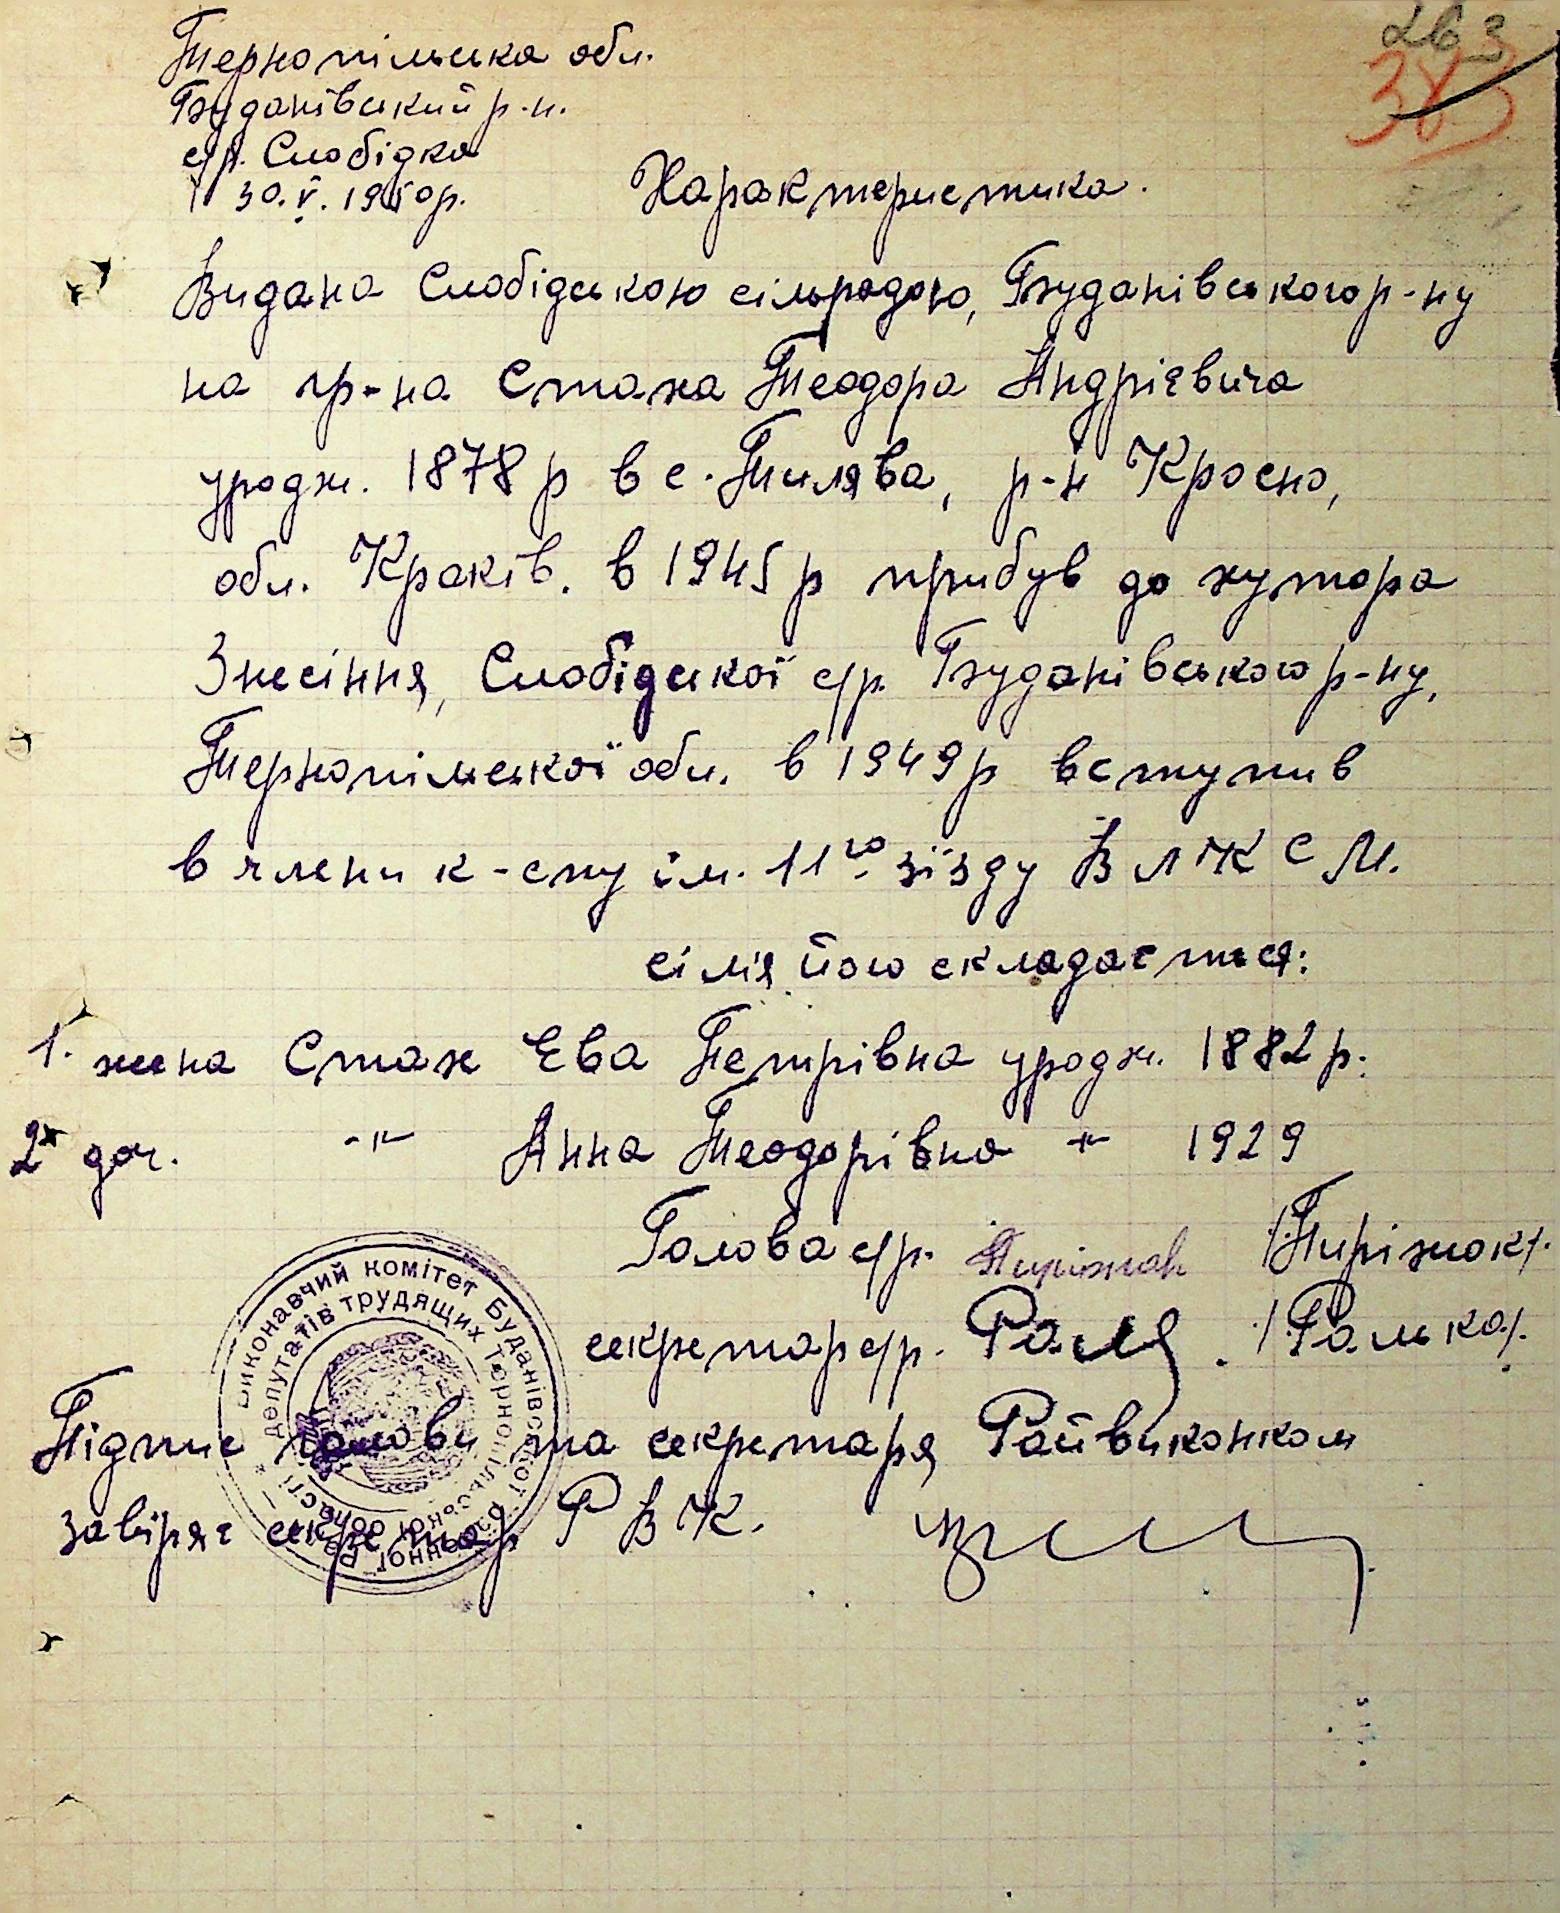 263
383
Тернопільська обл.
Буданівський р-н.
с/р. Слобідка
30.V.1950р.
Характеристика.
Видана Слобідською сільрадою, Буданівського р-ну
на гр-на Стаха Теодора Андрієвича
уродж. 1878 р в с. Тилява, р-н Кросно,
обл. Краків. в 1945 р прибув до хутора
Знесіння, Слобідської с/р. Буданівського р-ну,
Тернопільської обл. в 1949 р вступив
в члени к-спу ім. 11го зїзду ВЛКСМ.
сім'я його складається:
1. жена Стах Ева Петрівна уродж. 1882 р.
2 доч. -"- Анна Теодорівна -"- 1929
Голова с/р. Пиріжок /Пиріжок/.
секретар с/р. /Ралька/.
Підпис голови та секретаря Райвиконком
завіряє секретар РВК.
Виконавчий комітет Буданівської районної Ради
депутатів трудящих Тернопільської області